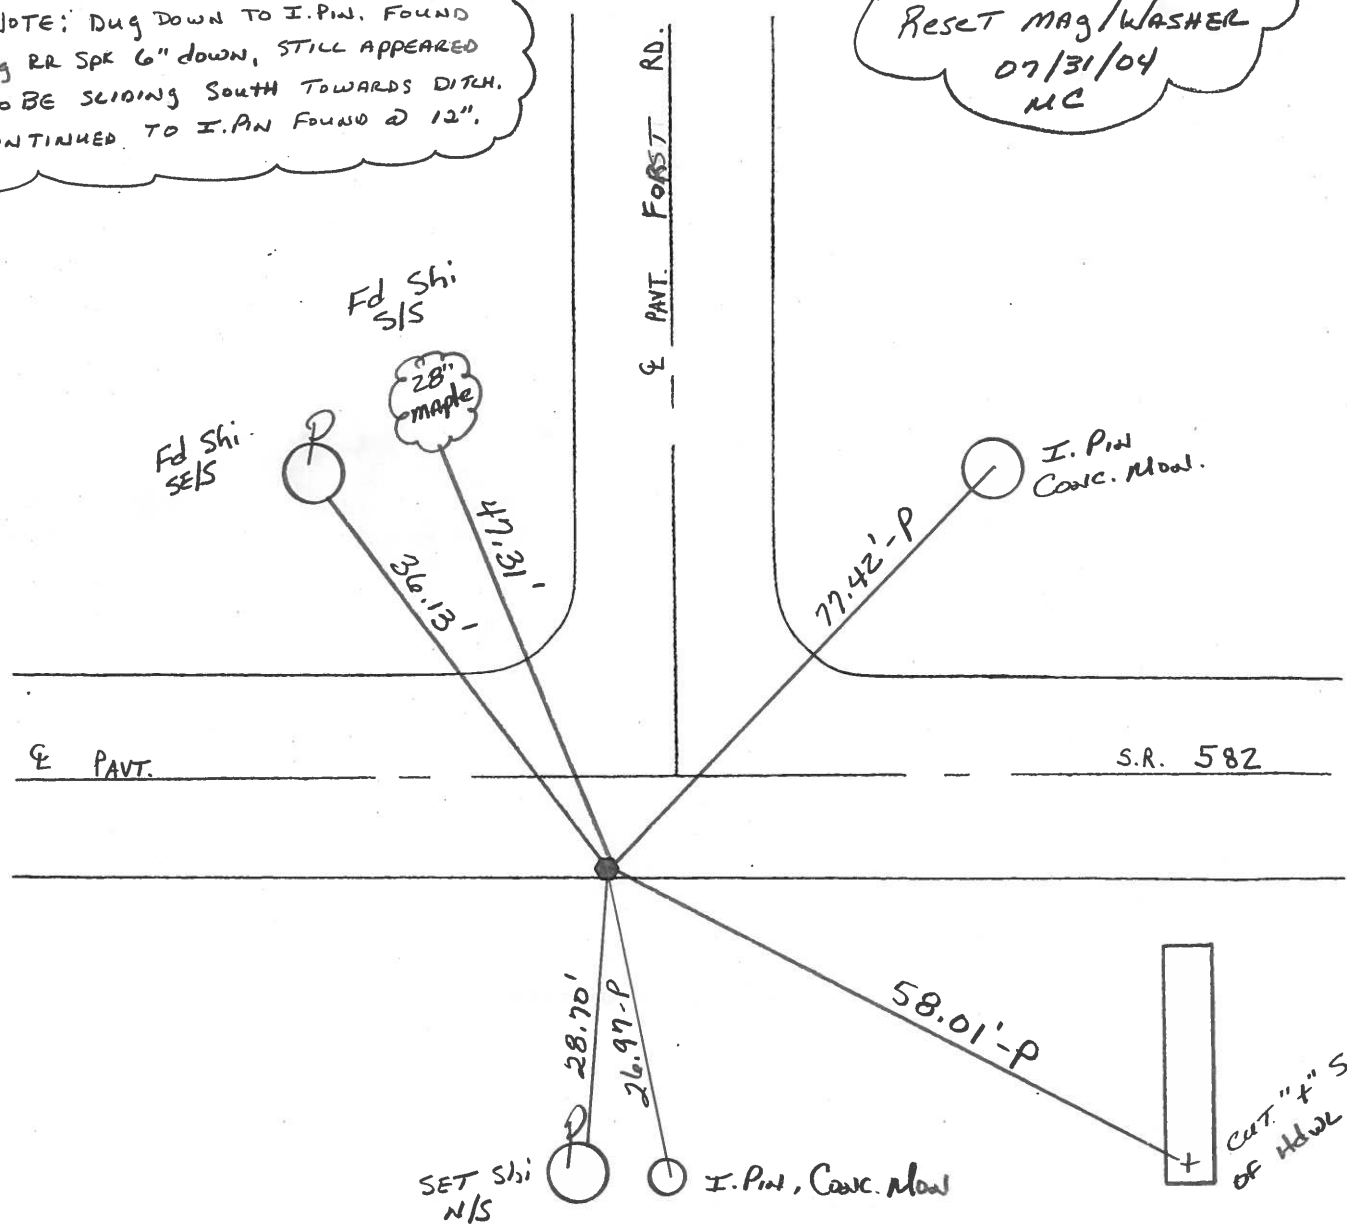 NOTE: Dug Down To I.Pin. Found
RR Spk 6" down, STILL APPEARED
BE SLIDING SOUTH TOWARDS DITCH.
TO I.PIN FOUND @ 12".
Reset MAg/WASHER
07/31/04
MC
℄ PAVT. FORST RD.
Fd Shi
S/S
28"
MAple
Fd Shi
SE/S
P
I. Pin
Conc. Mon.
36.13'
47.31'
77.42'-P
℄ PAVT.
S.R. 582
28.70'
26.97-P
58.01'-P
P
SET Shi
N/S
I.Pin, Conc. Mon
CUT "+" S
OF HdWL